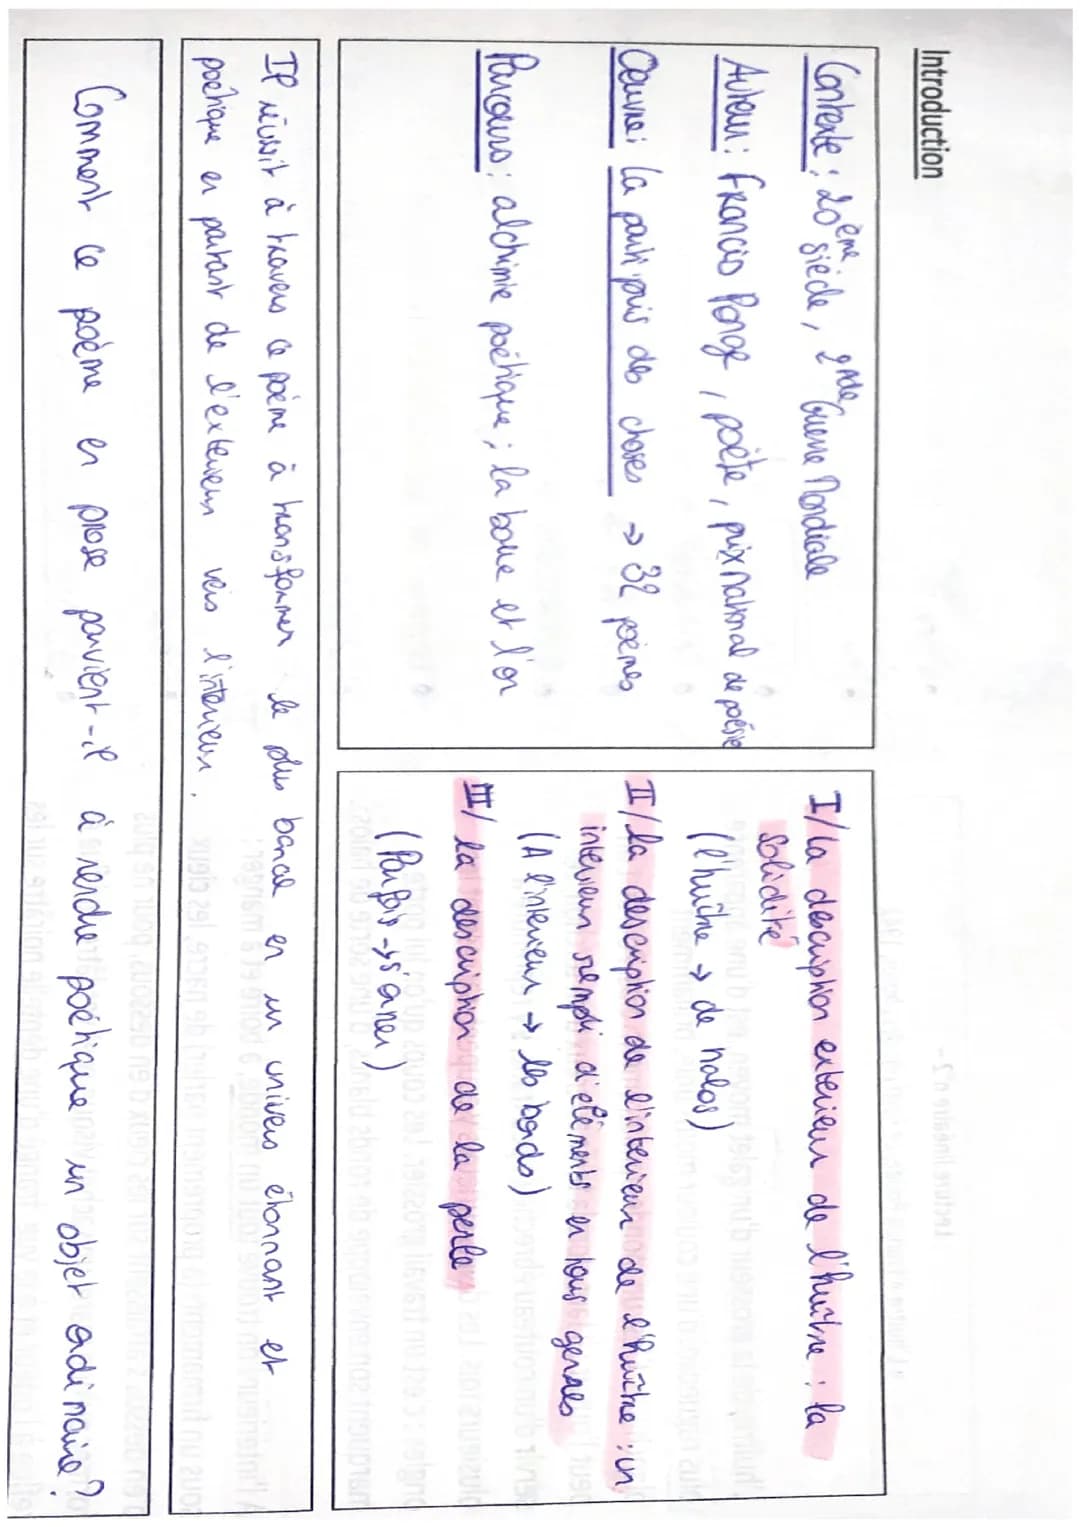 Introduction
Contexte : 20ème siècle, 2nde Guerre Mondiale
Auteur : Francis Ponge, poète, prix national de poésie
Oeuvre : Le parti pris des choses → 32 poèmes
Parcours : alchimie poétique ; la boue et l'or
I/ La description extérieur de l'huître : la
solidité
(l'huître → de halos)
II/ La description de l'intérieur de l'huître : un
intérieur rempli d'éléments en tous genres
(A l'intérieur → les bords)
III/ La description de la perle
(Parfois → s'orner)
Il réussit à travers ce poème à transformer le plus banal en un univers étonnant et
poétique en partant de l'extérieur vers l'intérieur.
Comment ce poème en prose parvient-il à rendre poétique un objet ordinaire ?